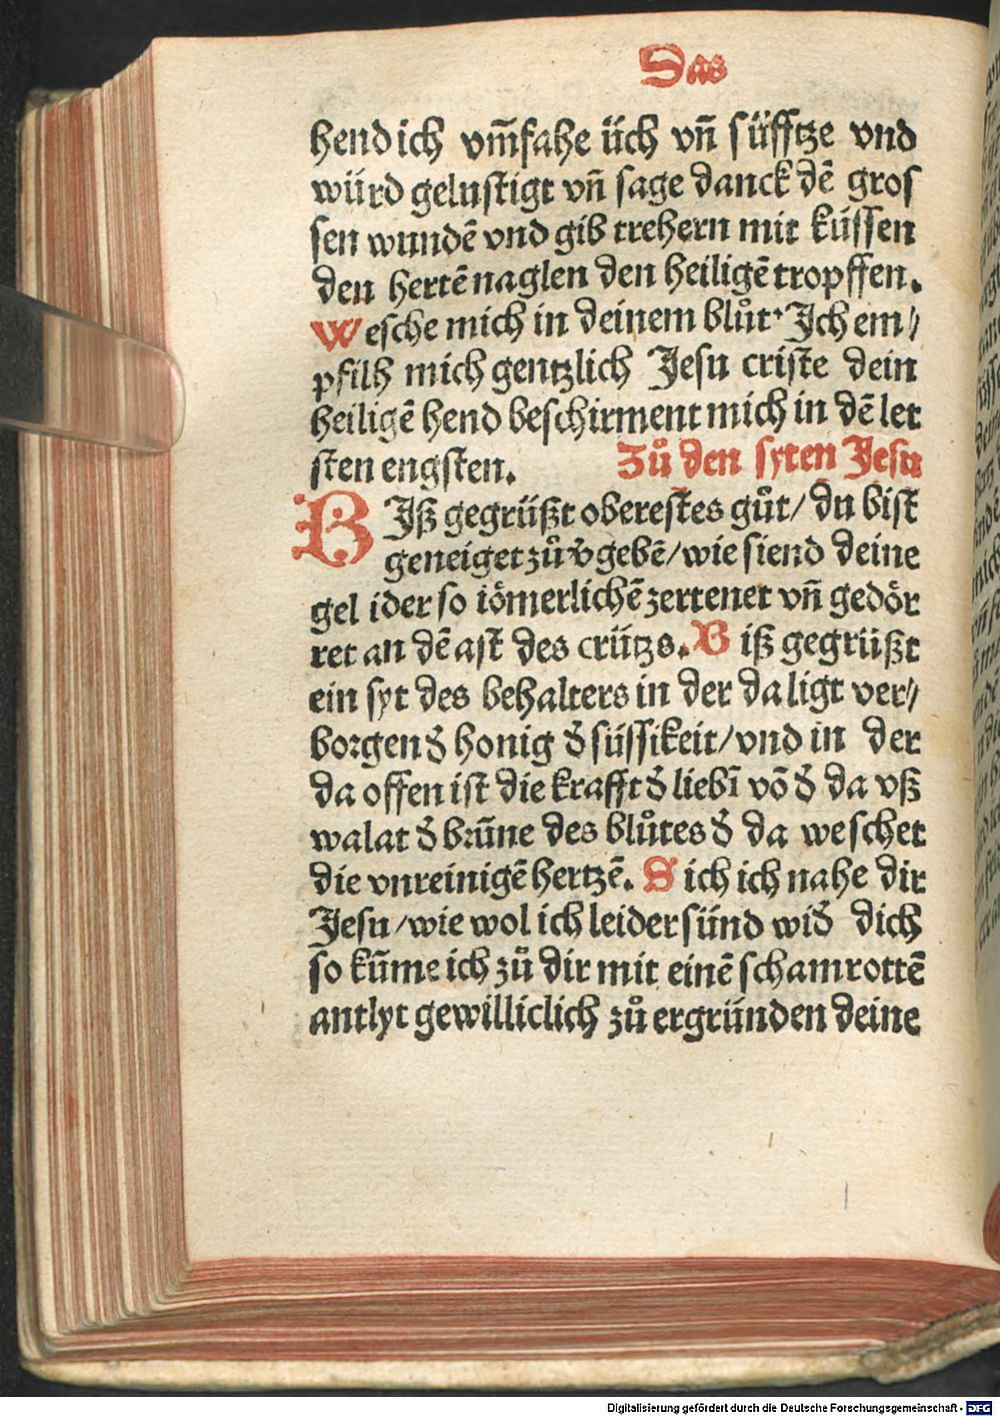 Das
hend ich vm̄fahe üch vn̄ süfftze vnd
würd gelustigt vn̄ sage danck dē gros
sen wundē vnd gib trehern mit küssen
den hertē naglen den heiligē tropffen.
Wesche mich in deinem blůt· Ich em⸗
pfilh mich gentzlich Jesu criste dein
heiligē hend beschirment mich in dē let
sten engsten. Zů den syten Jesu
BIß gegrüßt oberestes gůt/ du bist
geneiget zů v̄gebē/wie siend deine
gel ider so iömerlichē zertenet vn̄ gedör
ret an dē ast des crützs. Biß gegrüßt
ein syt des behalters in der da ligt ver⸗
borgen d̄ honig d̄ süssikeit/vnd in der
da offen ist die krafft d̄ liebī vō d̄ da vß
walat d̄ brūne des blůtes d̄ da weschet
die vnreinigē hertzē. Sich ich nahe dir
Jesu/wie wol ich leider sünd wid̄ dich
so kūme ich zů dir mit einē schamrottē
antlyt gewilliclich zů ergründen deine
Digitalisierung gefördert durch die Deutsche Forschungsgemeinschaft - DFG